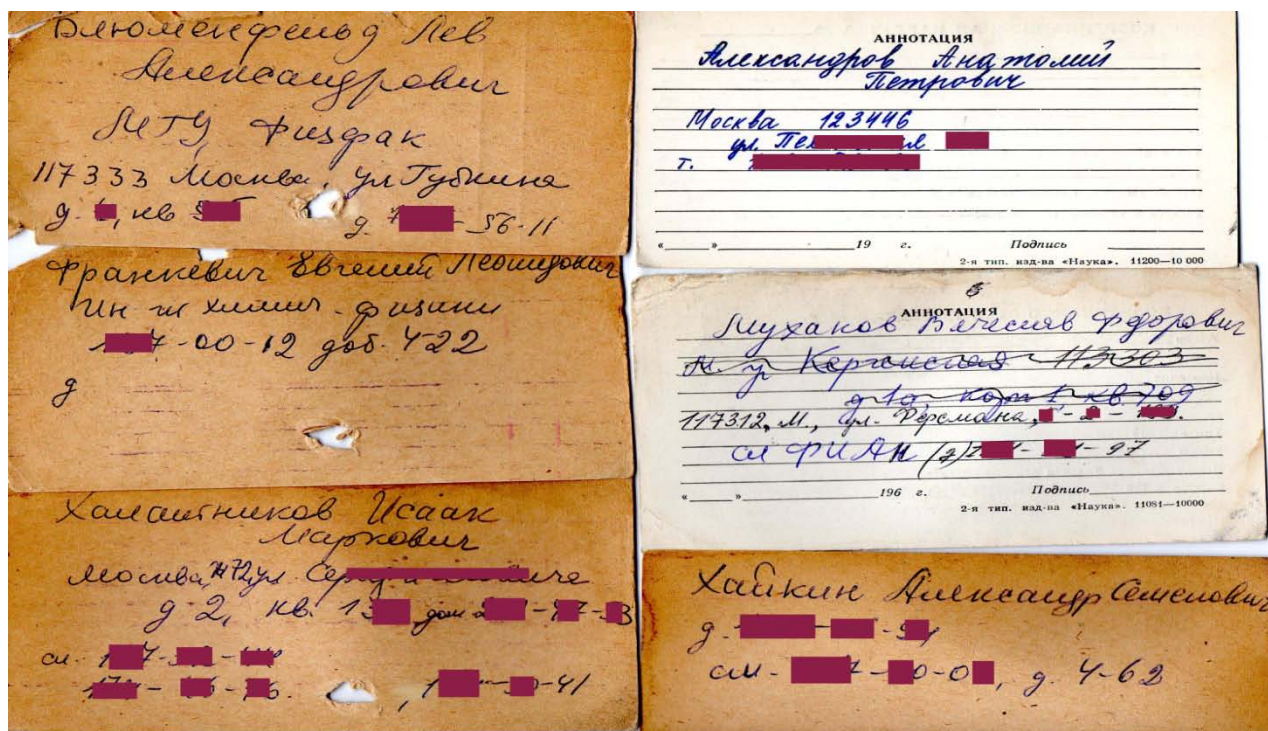 Блюменфельд Лев
Александрович
МГУ, Физфак
117333 Москва, ул Губкина
д. , кв
д. 7 -56-11
Франкевич Евгений Леонидович
Ин-т химич. физики
7-00-12 доб. 4-22
д
Халатников Исаак
Маркович
Москва, ул.
д-2, кв. 13 дом
сл. 7-
-41
АННОТАЦИЯ
Александров Анатолий
Петрович
Москва 123446
ул.
т.
« » 19 г. Подпись
2-я тип. изд-ва «Наука». 11200—10 000
АННОТАЦИЯ
Муханов Вячеслав Фдорович
М. у 113303
д 1а, корп 1, кв 709
117312, М., ул. Ферсмана, - 2 -
сл ФИАН (7) - - 97
« » 196 г. Подпись
2-я тип. изд-ва «Наука». 11081—10000
Хайкин Александр Семенович
д.
сл. - 7 - 0-0 , д. 4-62